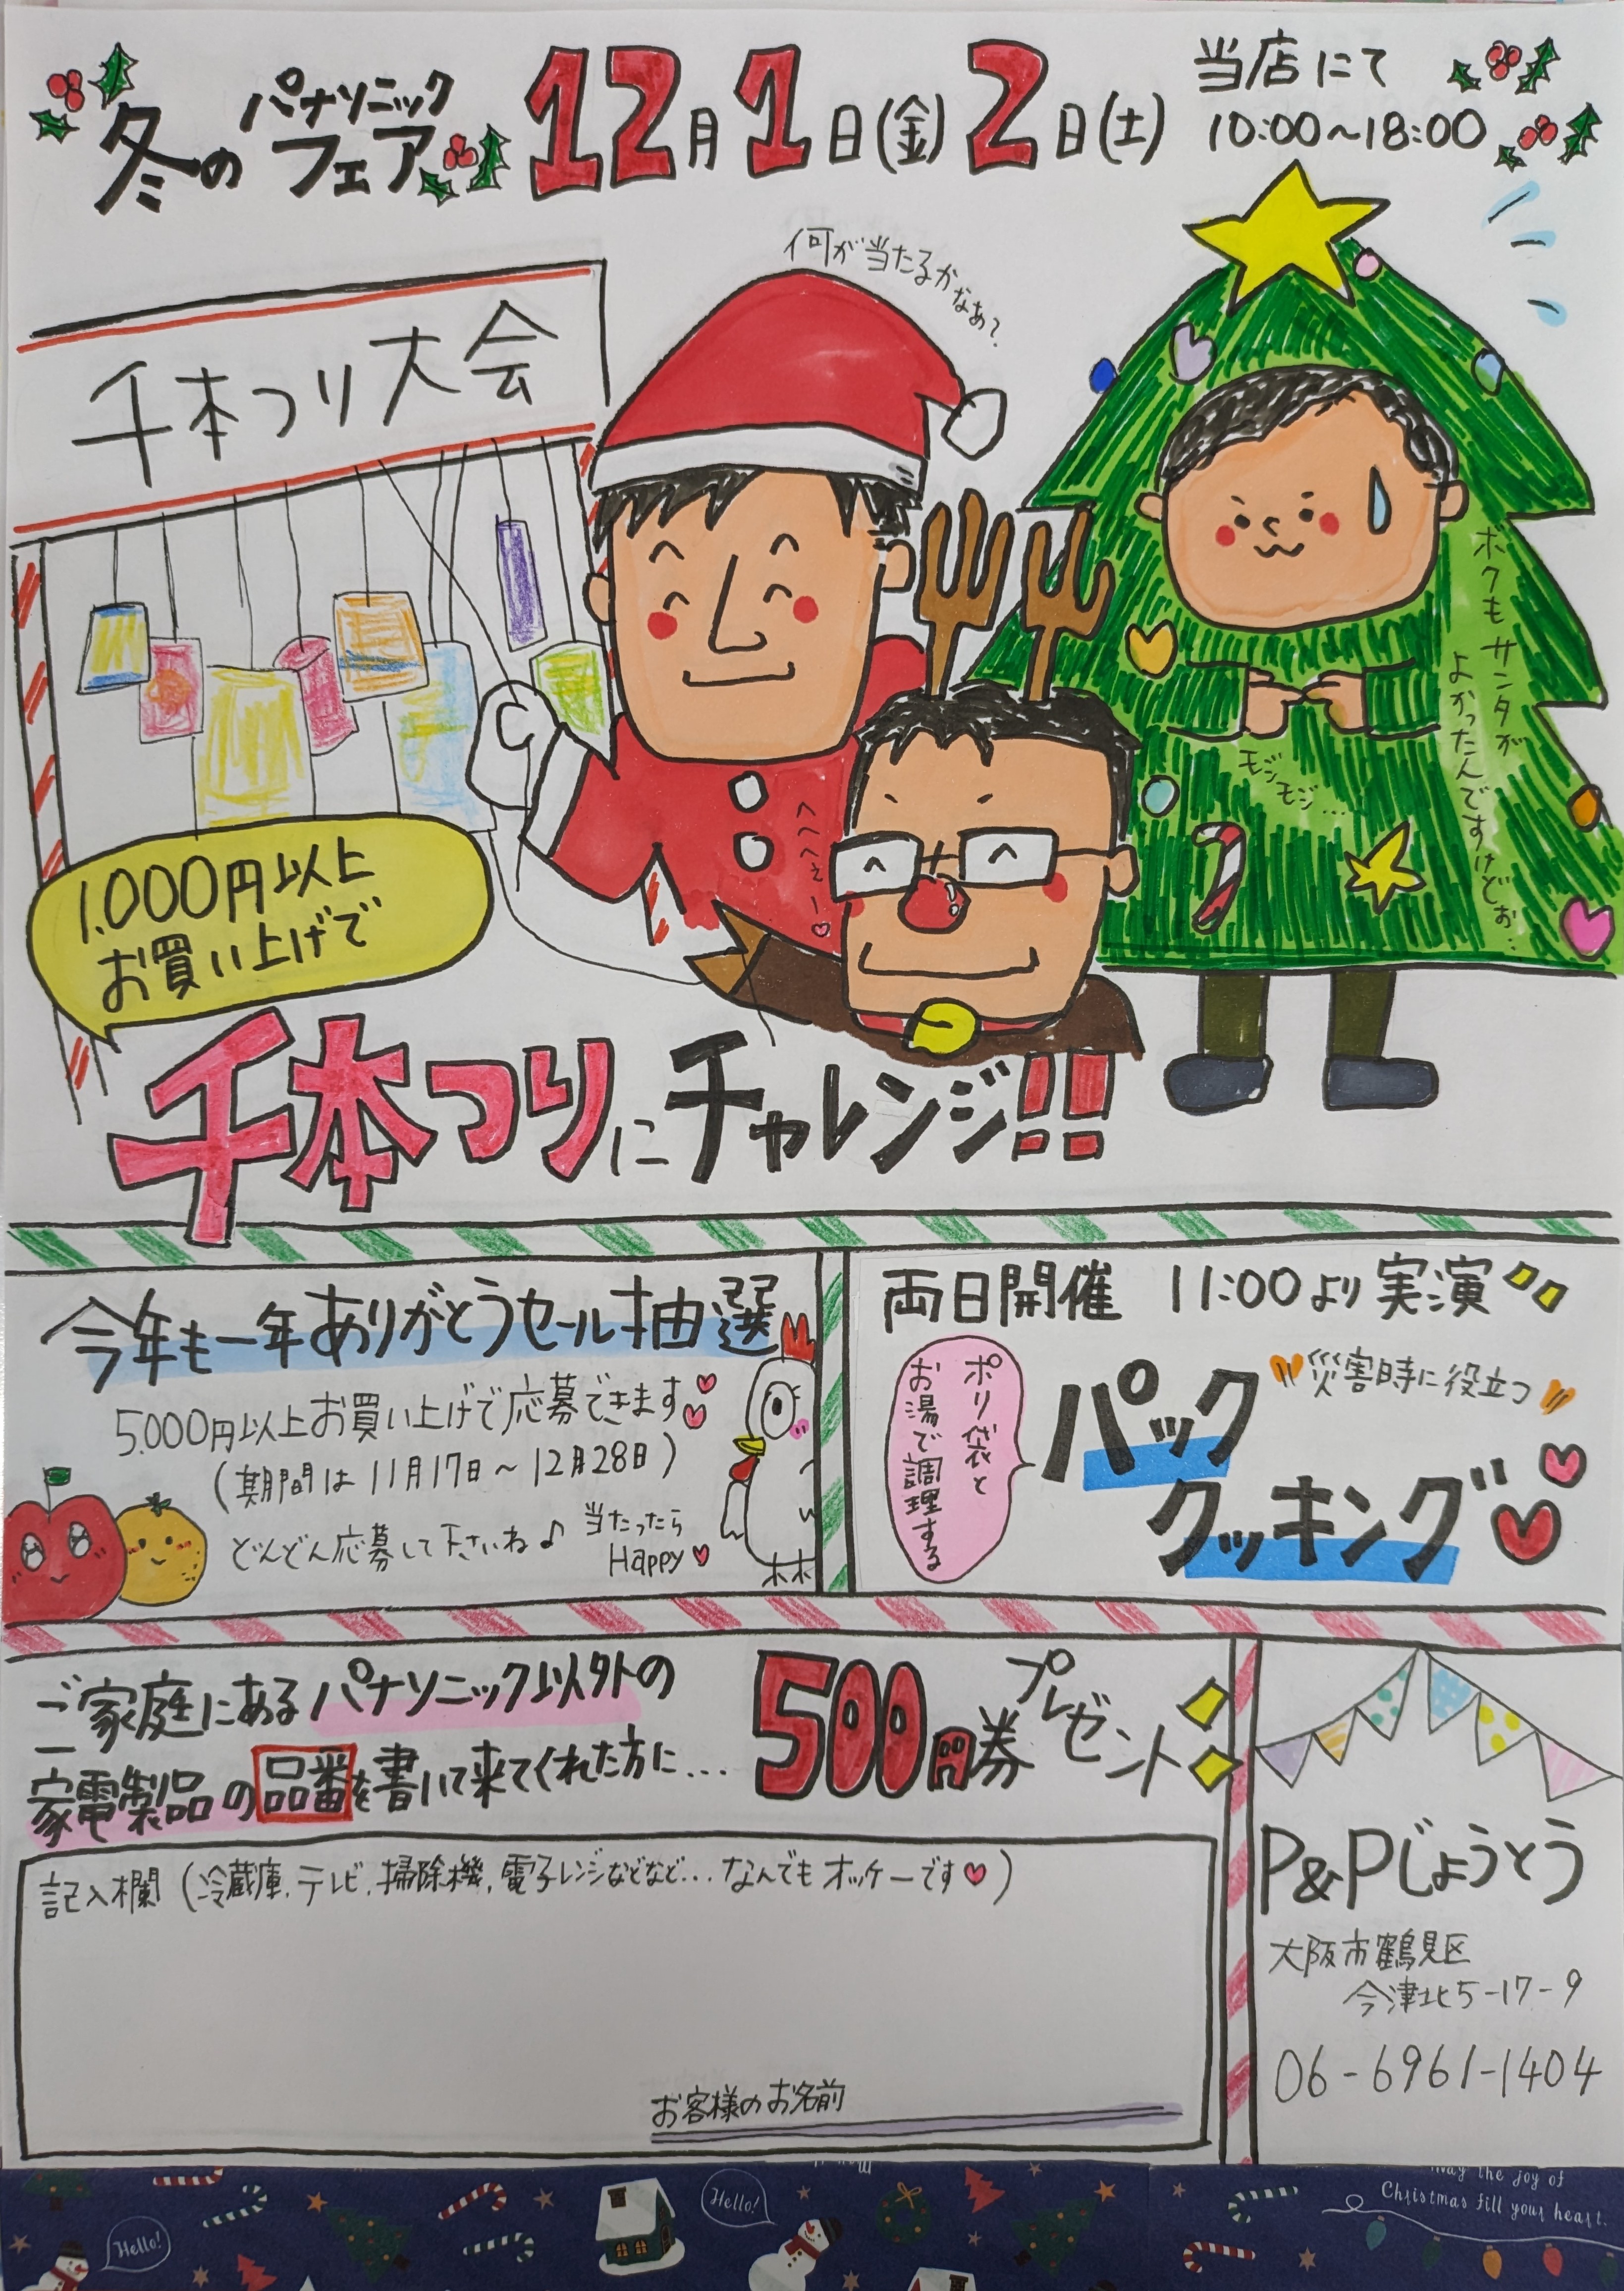 冬の パナソニックフェア 12月1日(金)2日(土)
当店にて
10:00～18:00
何が当たるかなあ?
千本つり大会
ボクもサンタが
よかったんですけどぉ…
モジモジ…
へへへぇー♡
1.000円以上
お買い上げで
千本つりにチャレンジ!!
今年も一年ありがとうセール抽選
5.000円以上お買い上げで応募できます
(期間は11月17日～12月28日)
どんどん応募して下さいね♪
当たったら
Happy♥
両日開催 11:00より実演
ポリ袋と
お湯で調理する
災害時に役立つ
パック
クッキング
ご家庭にあるパナソニック以外の
家電製品の品番を書いて来てくれた方に…
500円券プレゼント
記入欄(冷蔵庫.テレビ.掃除機.電子レンジなどなど…なんでもオッケーです♥)
お客様のお名前
P&Pじょうとう
大阪市鶴見区
今津北5-17-9
06-6961-1404
Hello!
Hello!
may the joy of
Christmas fill your heart.